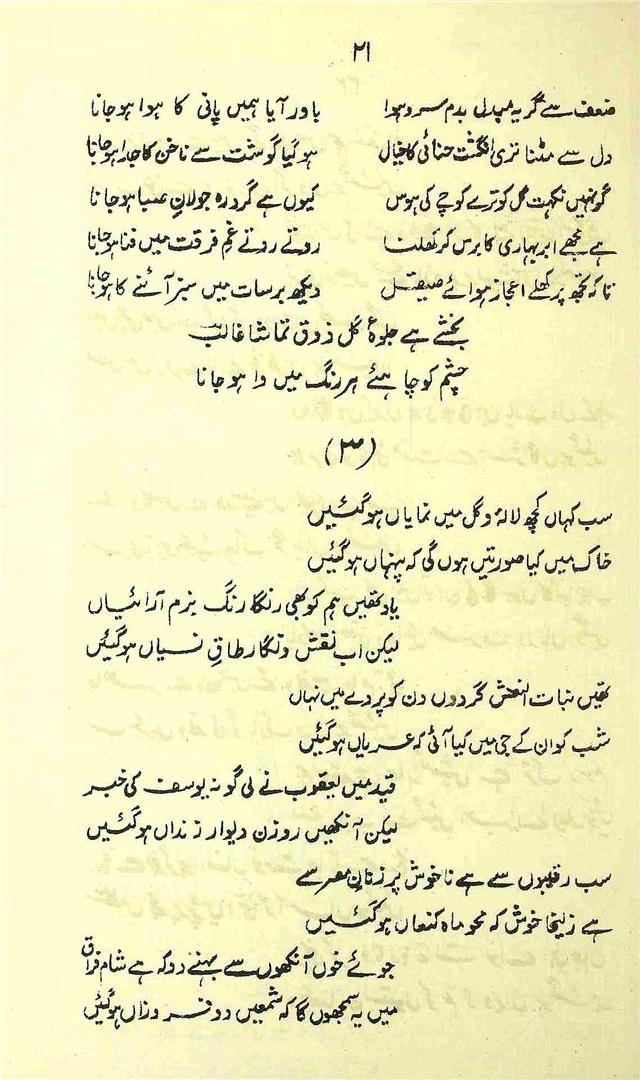 ۲۱
ضعف سے گریہ مبدل بدم سرد ہوا باور آیا ہمیں پانی کا ہوا ہو جانا
دل سے مٹنا تری انگشت حنائی کا خیال ہو گیا گوشت سے ناخن کا جدا ہو جانا
گو نہیں نکہت گل کو ترے کوچے کی ہوس کیوں ہے گردِ رہ جولانِ صبا ہو جانا
ہے مجھے ابر بہاری کا برس کر کھلنا روتے روتے غمِ فرقت میں فنا ہو جانا
تا کہ تجھ پر کھلے اعجاز ہوائے صیقل دیکھ برسات میں سبز آئنے کا ہو جانا
بخشے ہے جلوۂ گل ذوق تماشا غالب
چشم کو چاہئے ہر رنگ میں وا ہو جانا
(۳)
سب کہاں کچھ لالہ و گل میں نمایاں ہو گئیں
خاک میں کیا صورتیں ہوں گی کہ پنہاں ہو گئیں
یاد تھیں ہم کو بھی رنگا رنگ بزم آرائیاں
لیکن اب نقش و نگار طاقِ نسیاں ہو گئیں
تھیں بنات النعش گردوں دن کو پردے میں نہاں
شب کو ان کے جی میں کیا آئی کہ عریاں ہو گئیں
قید میں یعقوب نے لی گو نہ یوسف کی خبر
لیکن آنکھیں روزن دیوار زنداں ہو گئیں
سب رقیبوں سے ہے ناخوش پر زنانِ مصر سے
ہے زلیخا خوش کہ محو ماہ کنعاں ہو گئیں
جوئے خوں آنکھوں سے بہنے دو کہ ہے شام فراق
میں یہ سمجھوں گا کہ شمعیں دو فروزاں ہو گئیں